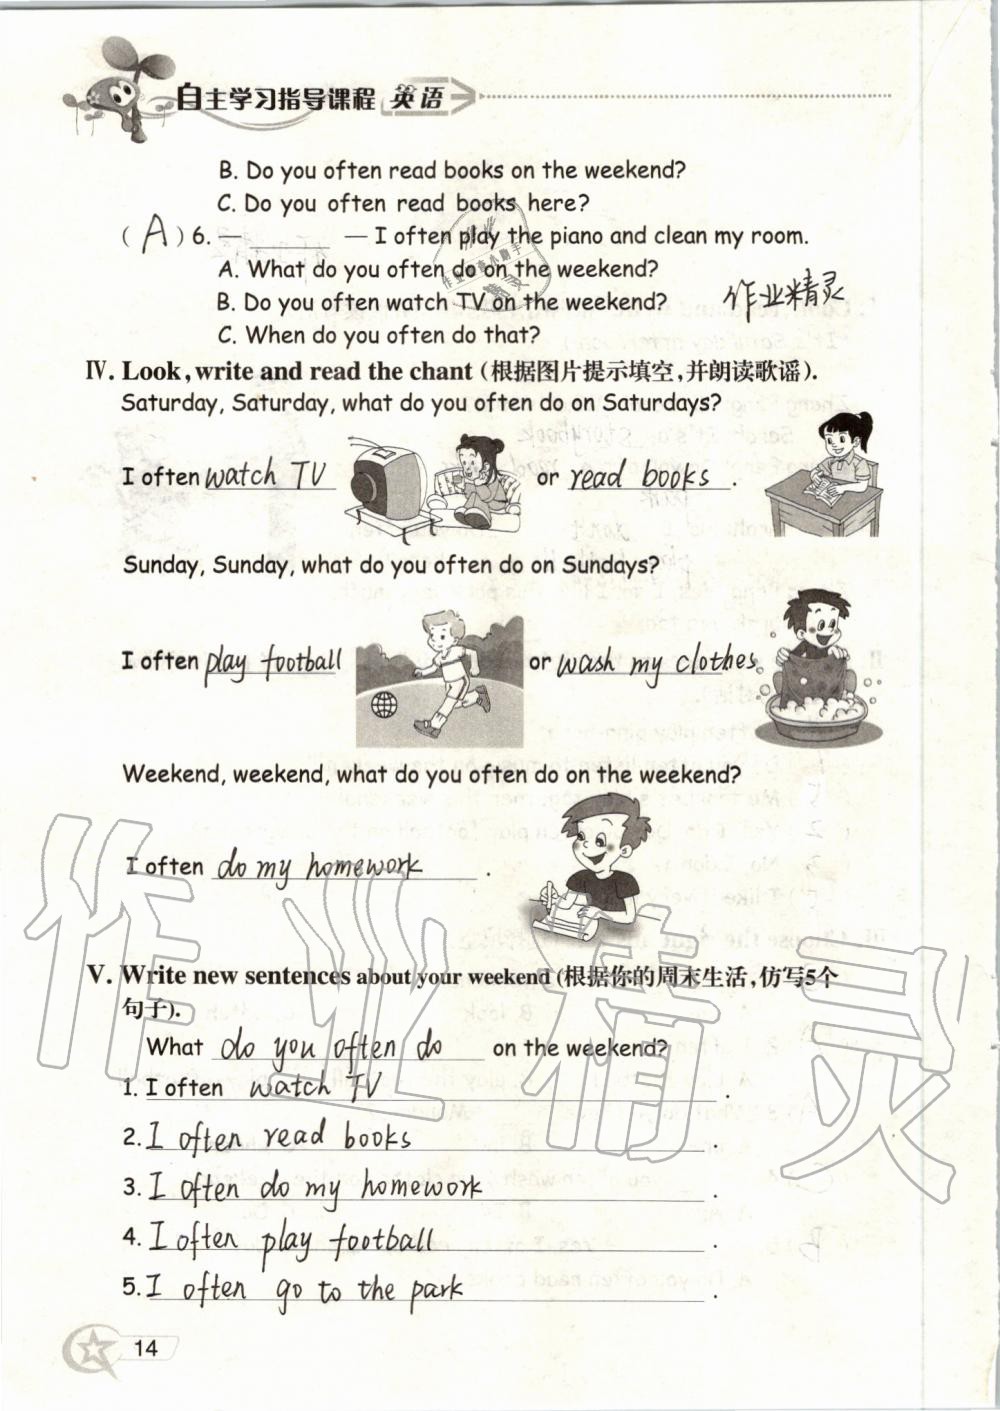 自主学习指导课程 英语
B. Do you often read books on the weekend?
C. Do you often read books here?
( A ) 6. — ______ — I often play the piano and clean my room.
A. What do you often do on the weekend?
B. Do you often watch TV on the weekend?
作业精灵
C. When do you often do that?
Ⅳ. Look, write and read the chant (根据图片提示填空,并朗读歌谣).
Saturday, Saturday, what do you often do on Saturdays?
I often watch TV or read books .
Sunday, Sunday, what do you often do on Sundays?
I often play football or wash my clothes
Weekend, weekend, what do you often do on the weekend?
I often do my homework .
Ⅴ. Write new sentences about your weekend (根据你的周末生活,仿写5个
句子).
What do you often do on the weekend?
1. I often watch TV .
2. I often read books .
3. I often do my homework .
4. I often play football .
5. I often go to the park .
14
作业精灵